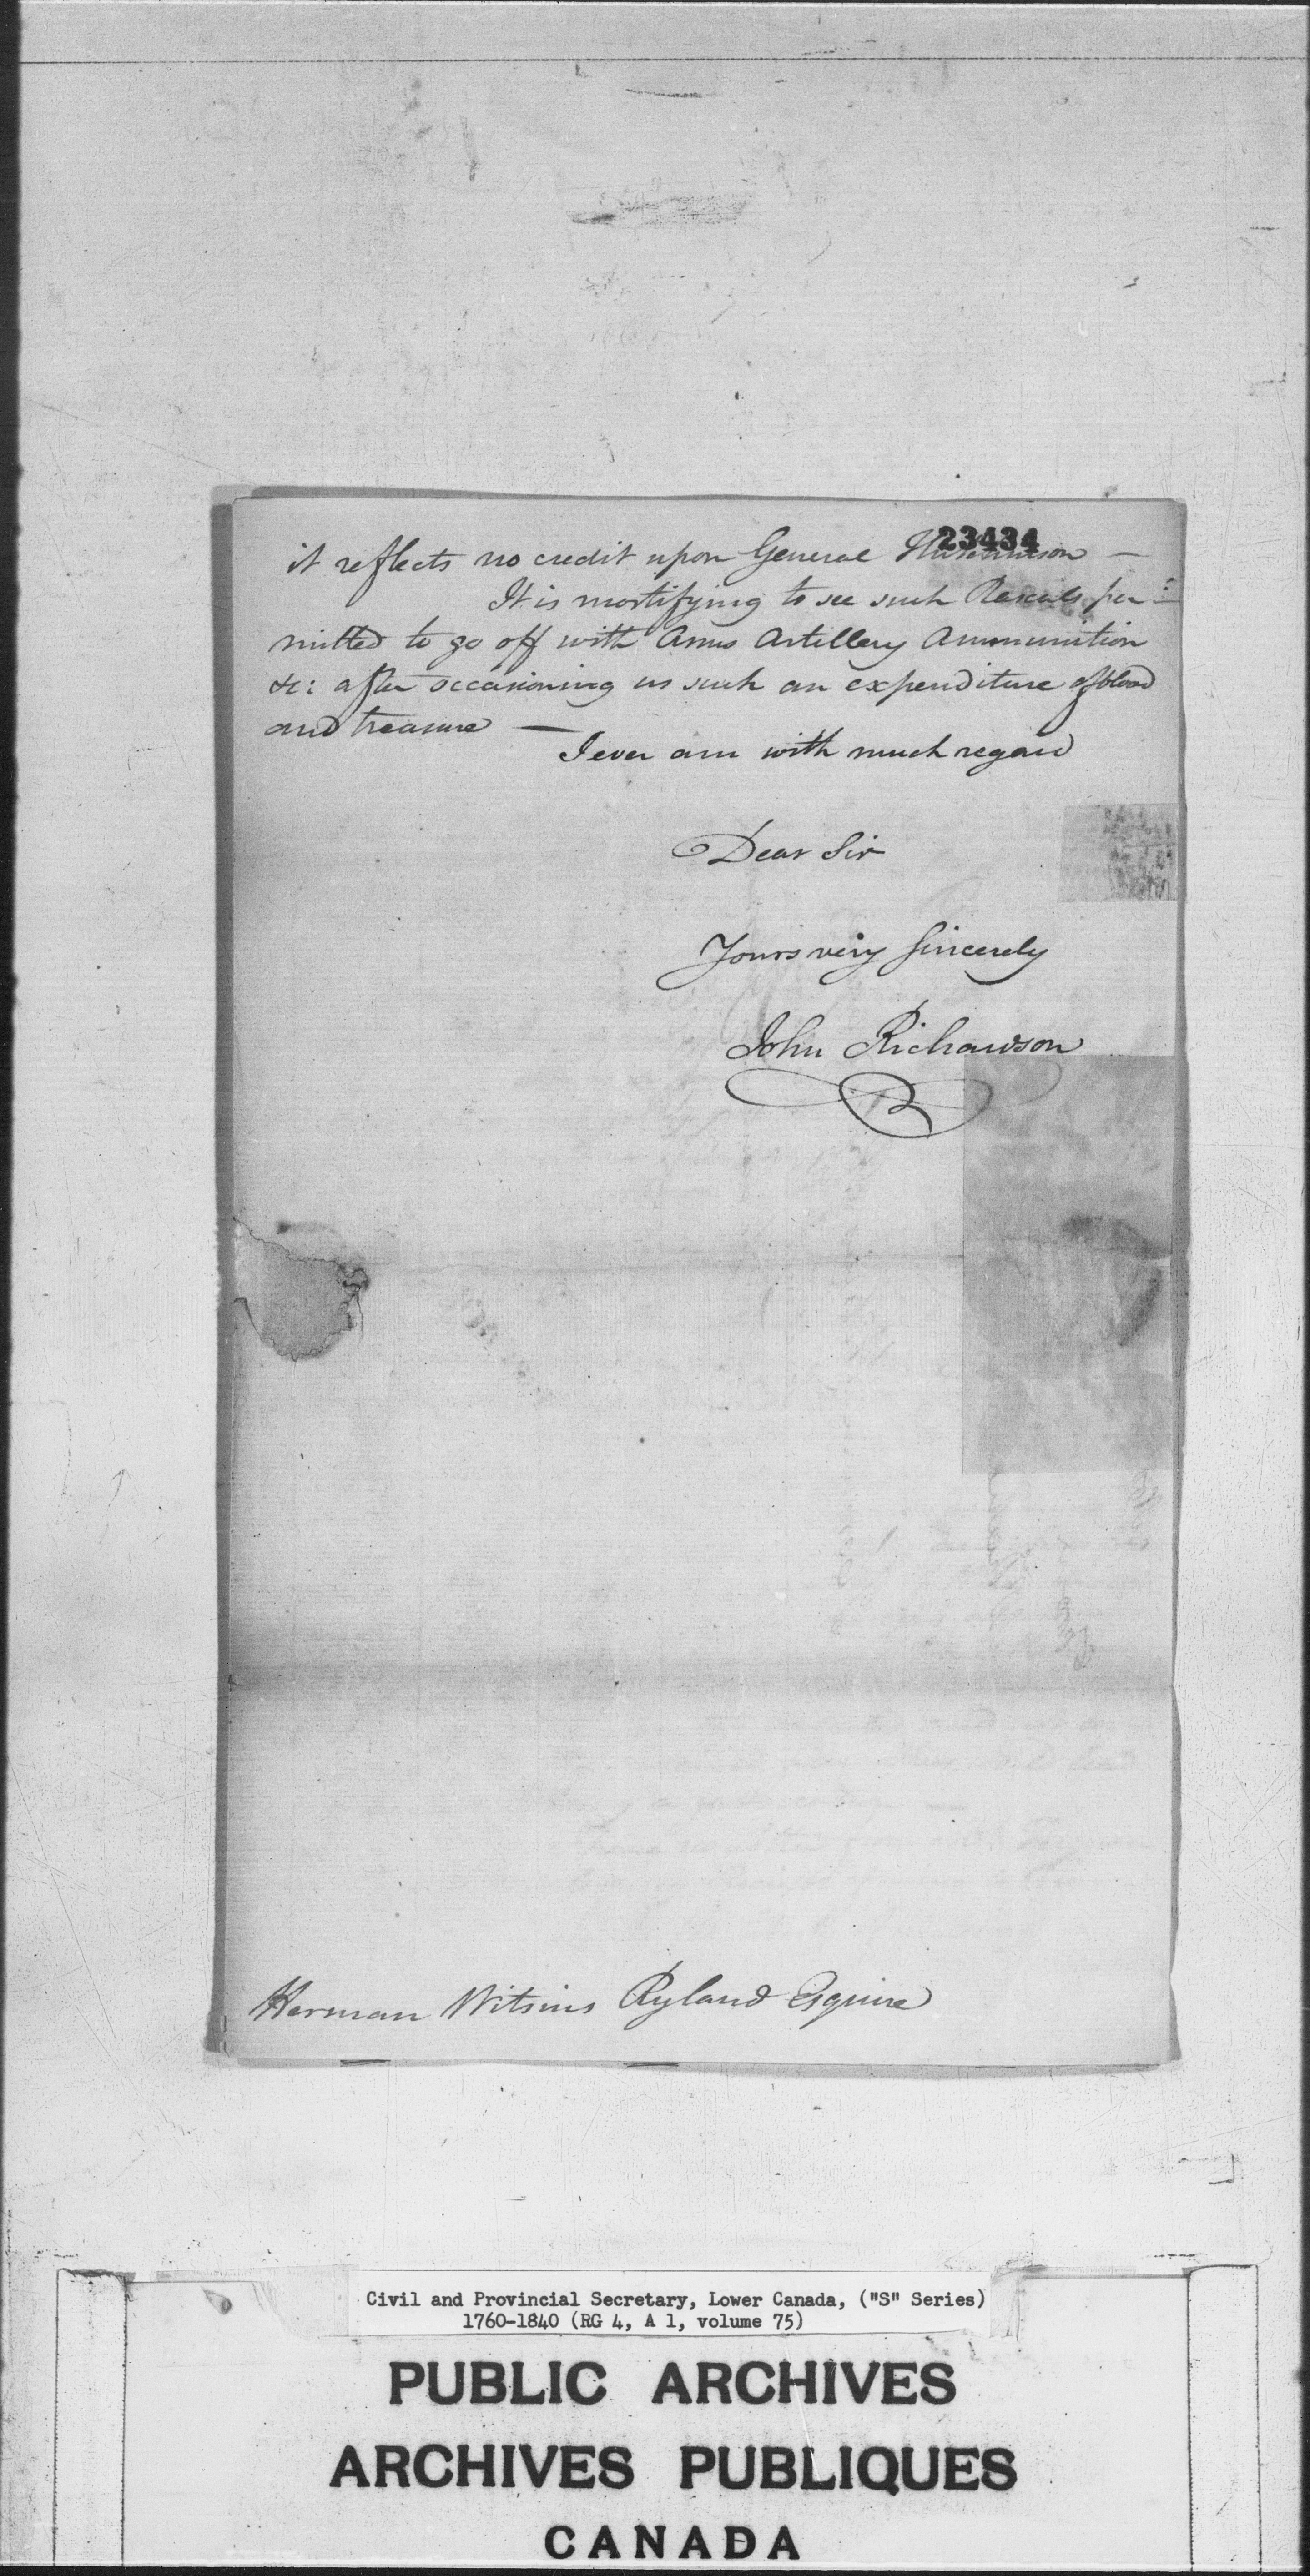 23434
it reflects no credit upon General Hutchinson —
It is mortifying to see such Rascals per=
mitted to go off with Arms Artillery Ammunition
&c: after occasioning us such an expenditure of blood
and treasure —
I ever am with much regard
Dear Sir
Yours very sincerely
John Richardson
Herman Witsius Ryland Esquire
Civil and Provincial Secretary, Lower Canada, ("S" Series)
1760-1840 (RG 4, A 1, volume 75)
PUBLIC ARCHIVES
ARCHIVES PUBLIQUES
CANADA